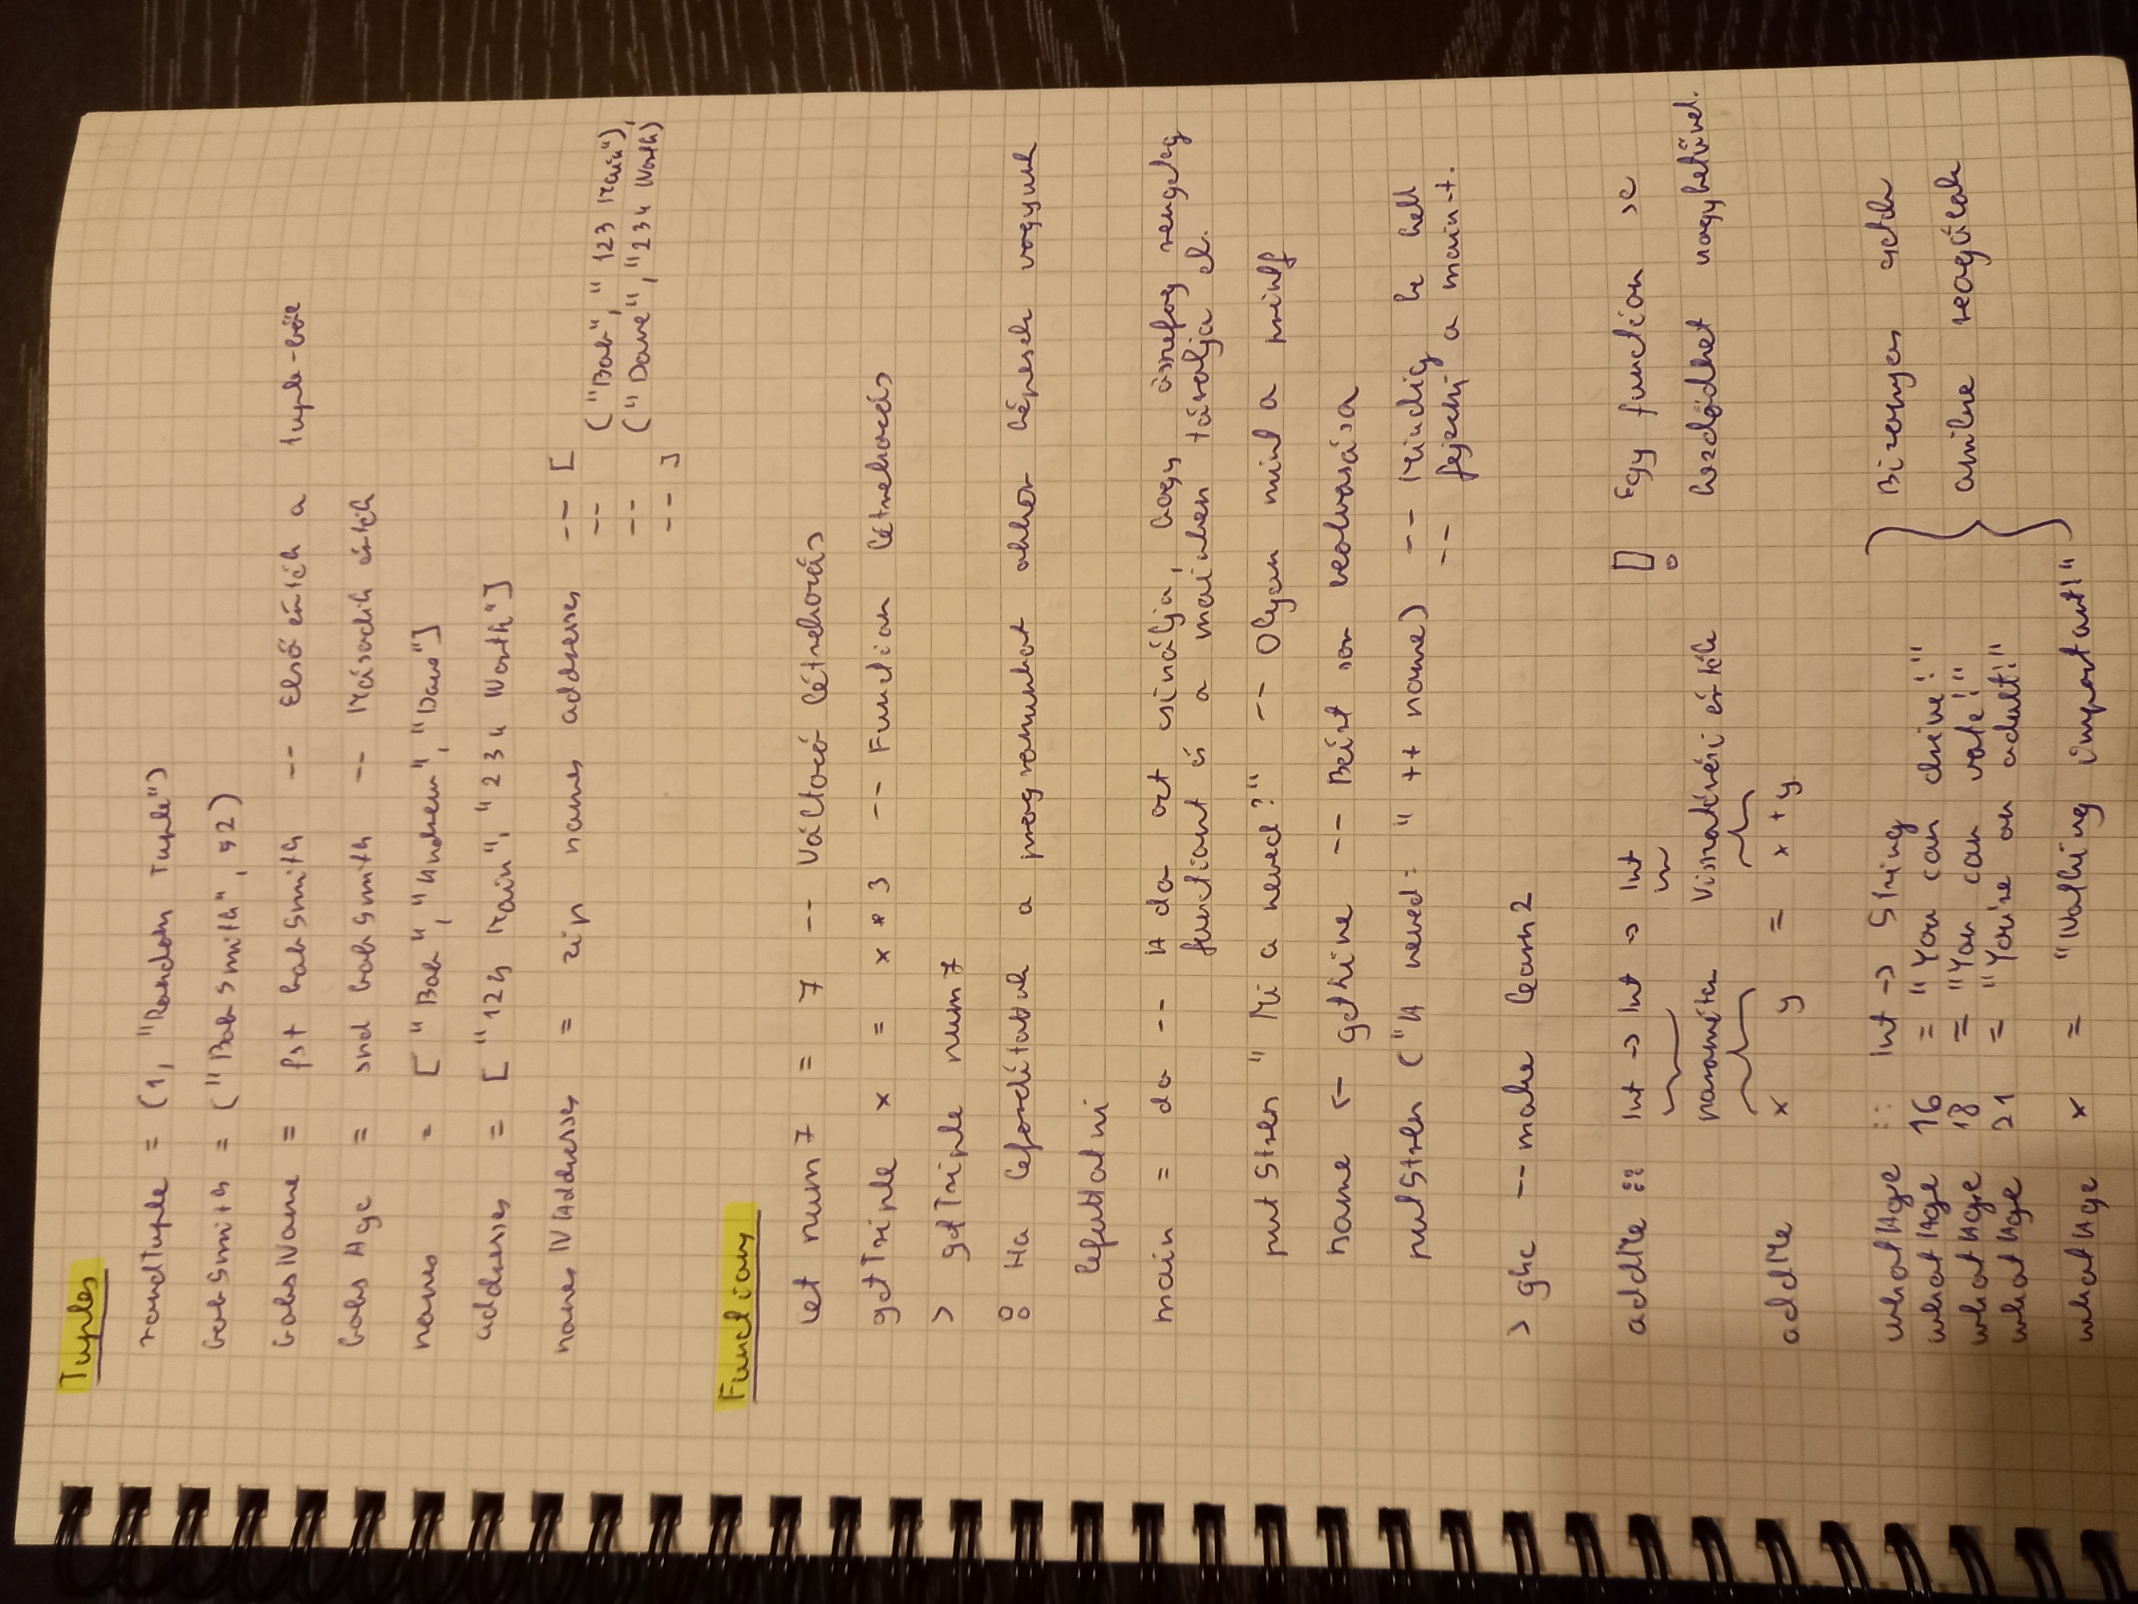 Tuples
randTuple = (1, "Random Tuple")
bobSmith = ("Bob Smith", 52)
bobsName = fst bobSmith -- Első érték a tuple-ből
bobsAge = snd bobSmith -- Második érték
names = ["Bob", "Andrew", "Dave"]
addresses = ["123 Main", "234 North"]
namesNAddresses = zip names addresses -- [
-- ("Bob", "123 Main"),
-- ("Dave", "234 North)
-- ]
Functions
let num7 = 7 -- Változó létrehozás
getTriple x = x * 3 -- Function létrehozás
> getTriple num7
Ha lefordítottuk a programunkat akkor képesek vagyunk
lefuttatni
main = do -- A do azt csinálja, hogy összefog rengeteg
functiont és a mainben tárolja el.
putStrLn "Mi a neved?" -- Olyan mint a printf
name <- getLine -- Beírt sor beolvasása
putStrLn ("A neved: " ++ name) -- Mindig be kell
-- fejezni a main-t.
> ghc --make learn2
addMe :: Int -> Int -> Int ! Egy function se
paraméter Visszatérési érték kezdődhet nagybetűvel.
addMe x y = x + y
whatAge :: Int -> String Bizonyos esetek
whatAge 16 = "You can drive!"
whatAge 18 = "You can vote!" amikre reagálok
whatAge 21 = "You're an adult!"
whatAge x = "Nothing important!"